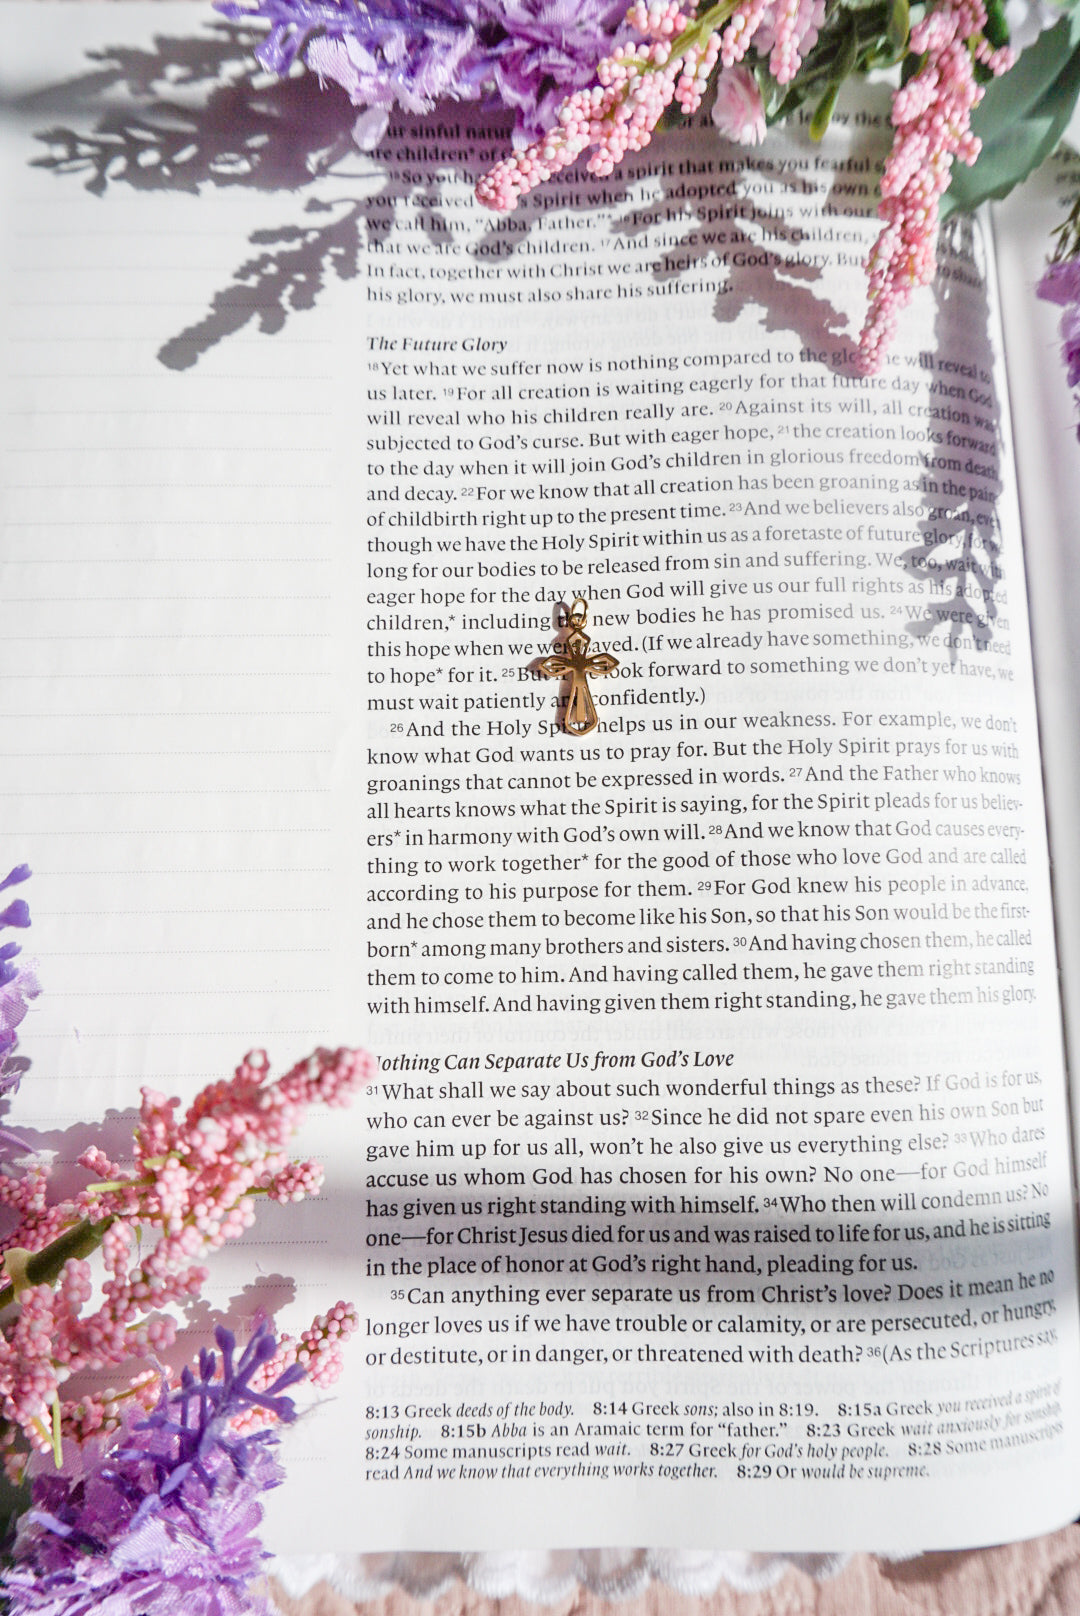 ur sinful natur
are children* of
¹⁵So you h received a spirit that makes you fearful s
you received 's Spirit when he adopted you as his own
we call him, “Abba, Father.”* ¹⁶For his Spirit joins with our
that we are God’s children. ¹⁷And since we are his children,
In fact, together with Christ we are heirs of God’s glory. But to share
his glory, we must also share his suffering.
The Future Glory
¹⁸Yet what we suffer now is nothing compared to the glo he will reveal to
us later. ¹⁹For all creation is waiting eagerly for that future day when God
will reveal who his children really are. ²⁰Against its will, all creation was
subjected to God’s curse. But with eager hope, ²¹the creation looks forward
to the day when it will join God’s children in glorious freedom from death
and decay. ²²For we know that all creation has been groaning as in the pain
of childbirth right up to the present time. ²³And we believers also groan, eve
though we have the Holy Spirit within us as a foretaste of future glory, for w
long for our bodies to be released from sin and suffering. We, too, wait with
eager hope for the day when God will give us our full rights as his adopted
children,* including the new bodies he has promised us. ²⁴We were given
this hope when we were saved. (If we already have something, we don’t need
to hope* for it. ²⁵But look forward to something we don’t yet have, we
must wait patiently and confidently.)
²⁶And the Holy Spirit helps us in our weakness. For example, we don’t
know what God wants us to pray for. But the Holy Spirit prays for us with
groanings that cannot be expressed in words. ²⁷And the Father who knows
all hearts knows what the Spirit is saying, for the Spirit pleads for us believ-
ers* in harmony with God’s own will. ²⁸And we know that God causes every-
thing to work together* for the good of those who love God and are called
according to his purpose for them. ²⁹For God knew his people in advance,
and he chose them to become like his Son, so that his Son would be the first-
born* among many brothers and sisters. ³⁰And having chosen them, he called
them to come to him. And having called them, he gave them right standing
with himself. And having given them right standing, he gave them his glory.
Nothing Can Separate Us from God’s Love
³¹What shall we say about such wonderful things as these? If God is for us,
who can ever be against us? ³²Since he did not spare even his own Son but
gave him up for us all, won’t he also give us everything else? ³³Who dares
accuse us whom God has chosen for his own? No one—for God himself
has given us right standing with himself. ³⁴Who then will condemn us? No
one—for Christ Jesus died for us and was raised to life for us, and he is sitting
in the place of honor at God’s right hand, pleading for us.
³⁵Can anything ever separate us from Christ’s love? Does it mean he no
longer loves us if we have trouble or calamity, or are persecuted, or hungry,
or destitute, or in danger, or threatened with death? ³⁶(As the Scriptures say,
8:13 Greek deeds of the body. 8:14 Greek sons; also in 8:19. 8:15a Greek you received a spirit of
sonship. 8:15b Abba is an Aramaic term for “father.” 8:23 Greek wait anxiously for sonship.
8:24 Some manuscripts read wait. 8:27 Greek for God’s holy people. 8:28 Some manuscripts
read And we know that everything works together. 8:29 Or would be supreme.